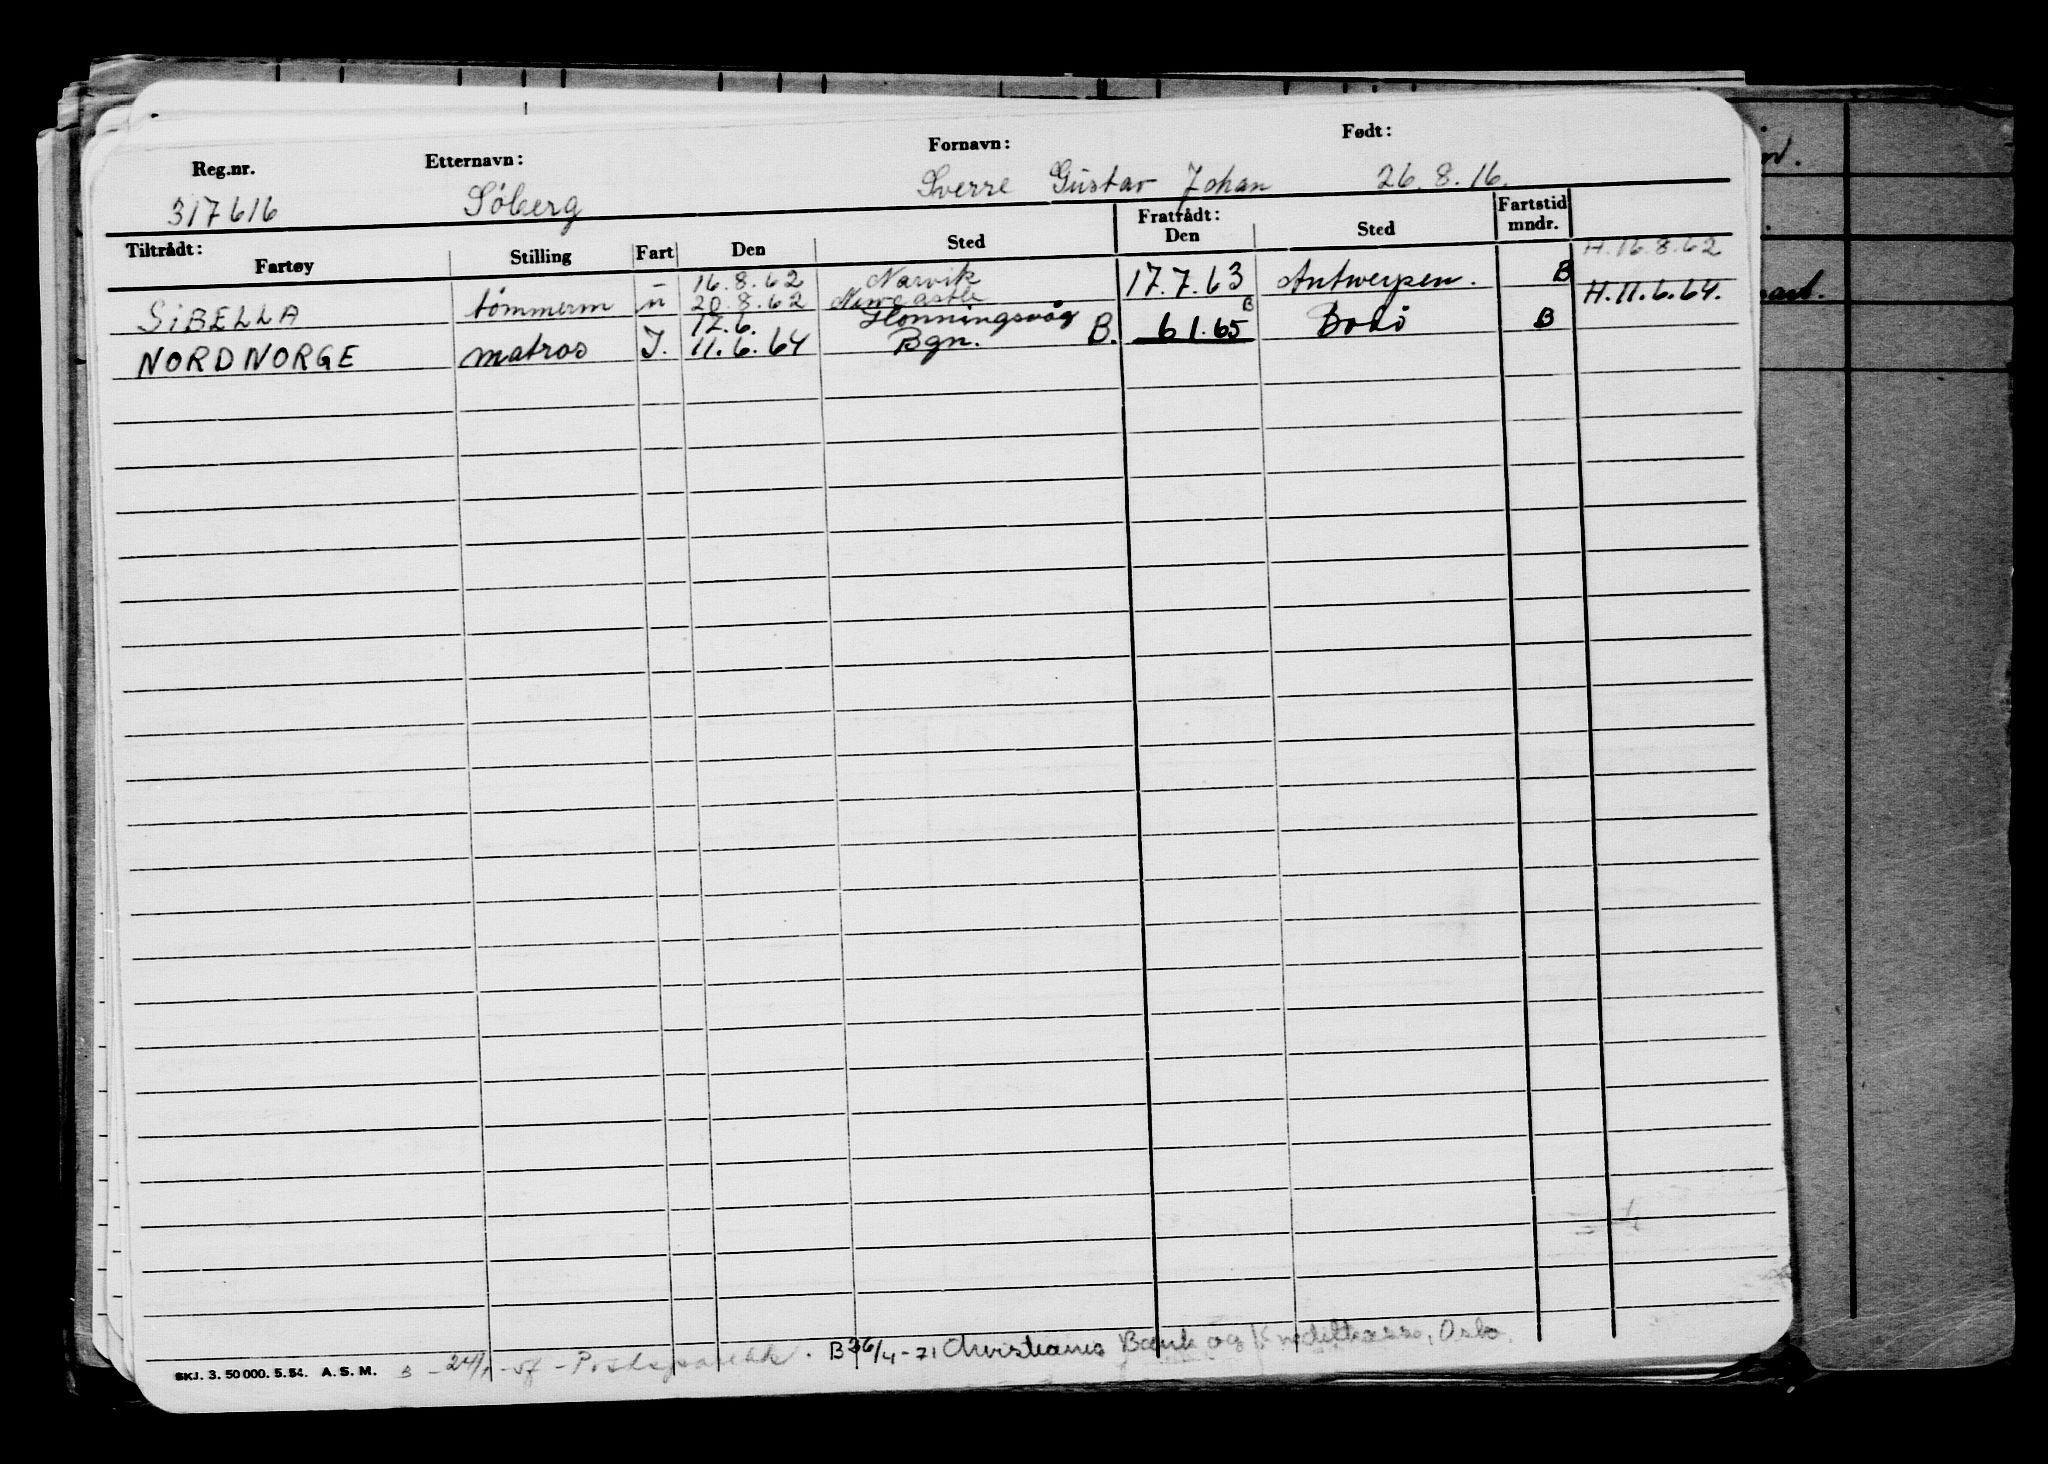 Reg.nr. Etternavn: Fornavn: Født:
317616 Söberg Sverre Gustav Johan 26.8.16.
Tiltrådt: Fratrådt: Fartstid
Fartøy Stilling Fart Den Sted Den Sted mndr.
H.16.8.62
– 16.8.62 Narvik
SiBELLA tömmerm u 20.8.62 Newcastle 17.7.63 Antwerpen. B H.11.6.64.
12.6. Honningsvåg B
NORDNORGE matros I. 11.6.64 Bgn. B. 6 1.65 Bodö B
SKJ. 3. 50 000. 5.54. A. S. M. B B 26/4-71 Christiania Bank og Kreditkasse, Oslo.